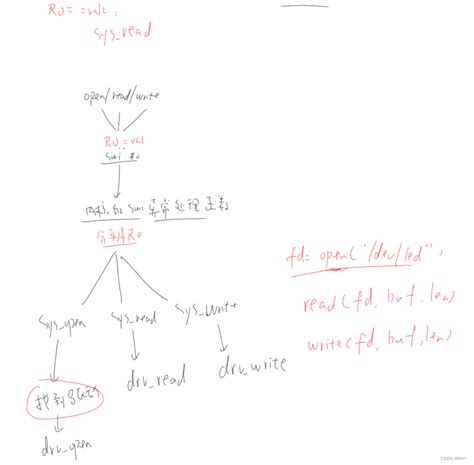 R0 = =val:
sys_read
open/read/write
R0=val
swi #0
内核的 swi 异常处理函数
分辨R0
sys_open
sys_read
sys_write
fd= open("/dev/led",
read(fd, buf, len)
write(fd, buf, len)
找到
drv_read
drv_write
drv_open